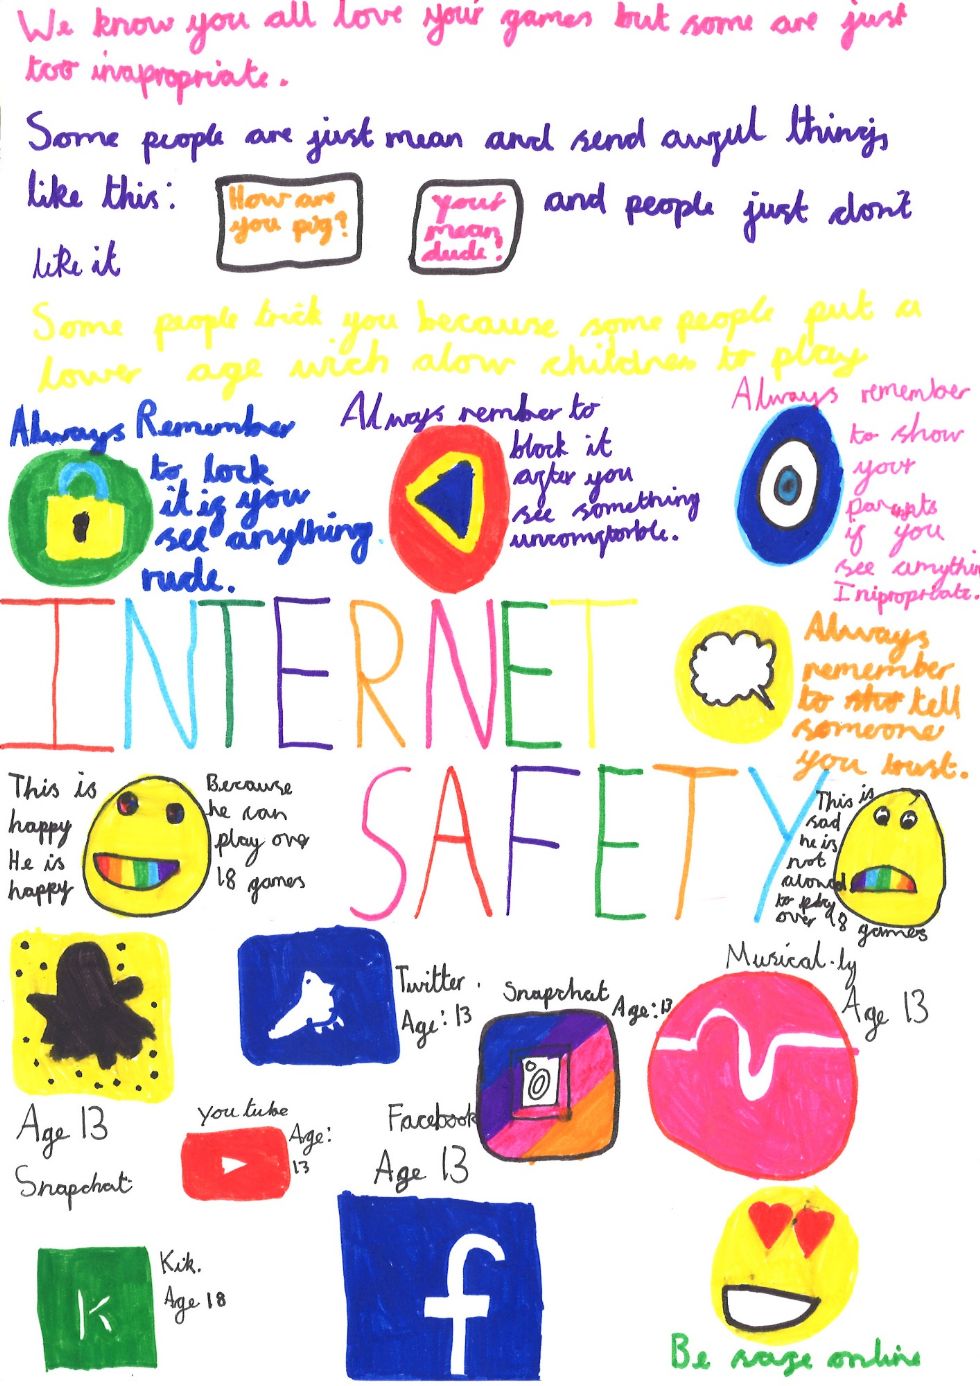 We know you all love your games but some are just
too inapropriate.
Some people are just mean and send awful things
like this:
How are
you pig?
your
mean
dude!
and people just don't
like it
Some people trick you because some people put a
lower age wich alow childres to play
Always Remember
to lock
it if you
see anything
rude.
Always rember to
block it
after you
see something
uncomftorble.
Always remember
to show
your
parents
if you
see anythin
Inipropriate.
INTERNET
Always
remember
to sho tell
someone
you trust.
SAFETY
This is
happy
He is
happy
Because
he can
play over
18 games
This is
sad
he is
not
alowed
to play
over 18 games
Twitter.
Age: 13
Snapchat Age: 13
Musical.ly
Age 13
Age 13
Snapchat
You tube
Age:
13
Facebook
Age 13
K
Kik.
Age 18
f
Be safe online